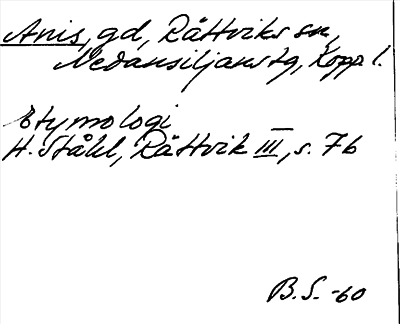 Anis, gd, Rättviks sn,
Nedansiljans tg, Kopp. l.
Etymologi
H. Ståhl, Rättvik III, s. 76
B.S. -60